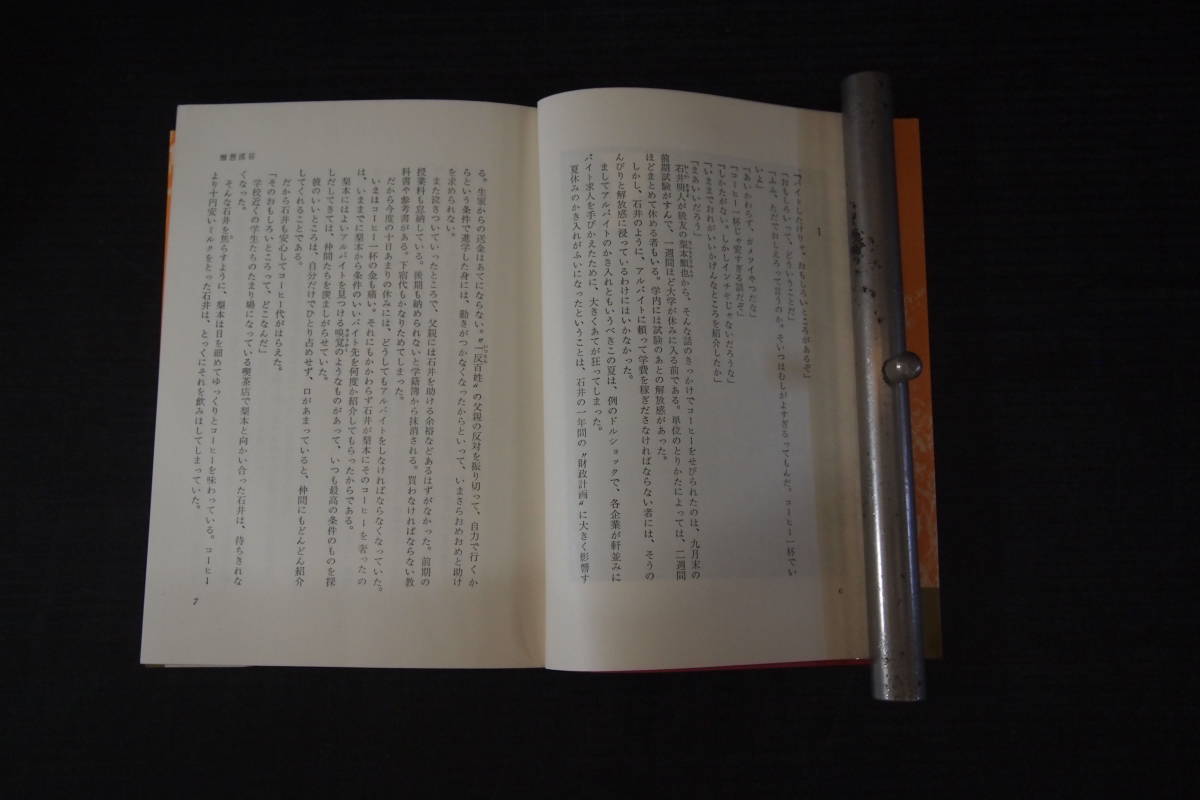 1
「バイトしたけりゃ、おもしろいところがあるぞ」
「おもしろいって、どういうことだ」
「ふふ、ただでおしえろって言うのか。そいつはむしがよすぎるってもんだ。コーヒー一杯でい
いよ」
「あいかわらず、ガメツイやつだな」
「コーヒー一杯じゃ安すぎる話だぞ」
「しかたがない。しかしインチキじゃないだろうな」
「いままでおれがいいかげんなところを紹介したか」
「まあいいだろう」
石井明人が級友の梨本順也から、そんな話のきっかけでコーヒーをせびられたのは、九月末の
前期試験がすんで、一週間ほど大学が休みに入る前である。単位のとりかたによっては、二週間
ほどまとめて休める者もいる。学内には試験のあとの解放感があった。
しかし、石井のように、アルバイトに頼って学費を稼ぎださなければならない者には、そうの
んびりと解放感に浸っているわけにはいかなかった。
ましてアルバイトのかき入れともいうべきこの夏は、例のドルショックで、各企業が軒並みに
バイト求人を手びかえたために、大きくあてが狂ってしまった。
夏休みのかき入れがふいになったということは、石井の一年間の〝財政計画〟に大きく影響す
6
る。生家からの送金はあてにならない。〝一反百姓〟の父親の反対を振り切って、自力で行くか
らという条件で進学した身には、動きがつかなくなったからといって、いまさらおめおめと助け
を求められない。
また泣きついていったところで、父親には石井を助ける余裕などあるはずがなかった。前期の
授業料も怠納している。後期も納められないと学籍簿から抹消される。買わなければならない教
科書や参考書がある。下宿代もかなりためてしまった。
だから今度の十日あまりの休みには、どうしてもアルバイトをしなければならなくなっていた。
いまはコーヒー一杯の金も痛い。それにもかかわらず石井が梨本にそのコーヒーを奢ったの
は、いままでに梨本から条件のいいバイト先を何度か紹介してもらったからである。
梨本にはよいアルバイトを見つける嗅覚のようなものがあって、いつも最高の条件のものを探
しだしてきては、仲間たちを羨ましがらせていた。
彼のいいところは、自分だけでひとり占めせず、口があまっていると、仲間にもどんどん紹介
してくれることである。
だから石井も安心してコーヒー代がはらえた。
「そのおもしろいところって、どこなんだ」
学校近くの学生たちのたまり場になっている喫茶店で梨本と向かい合った石井は、待ちきれな
くなった。
そんな石井を焦らすように、梨本は目を細めてゆっくりとコーヒーを味わっている。コーヒー
より十円安いミルクをとった石井は、とっくにそれを飲みほしてしまっていた。
7